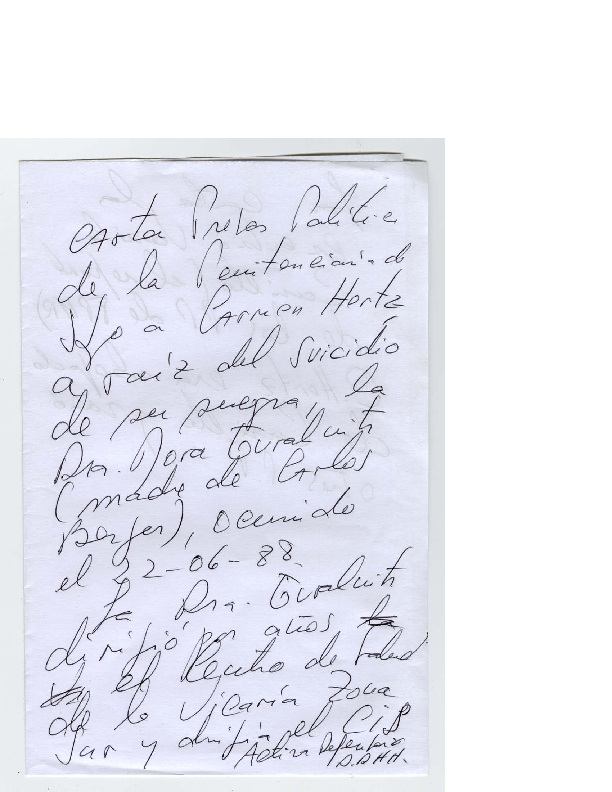 Carta Presos Políticos
de la Penitenciaría de
Stgo a Carmen Hertz
a raíz del suicidio
de su suegra, la
Dra. Dora Guralnik
(madre de Carlos
Berger), ocurrido
el 22-06-88.
La Dra. Guralnik
dirigió por años
el de Salud
de la Vicaría Zona
Sur y dirigía el
Activa Defensora
DDHH.